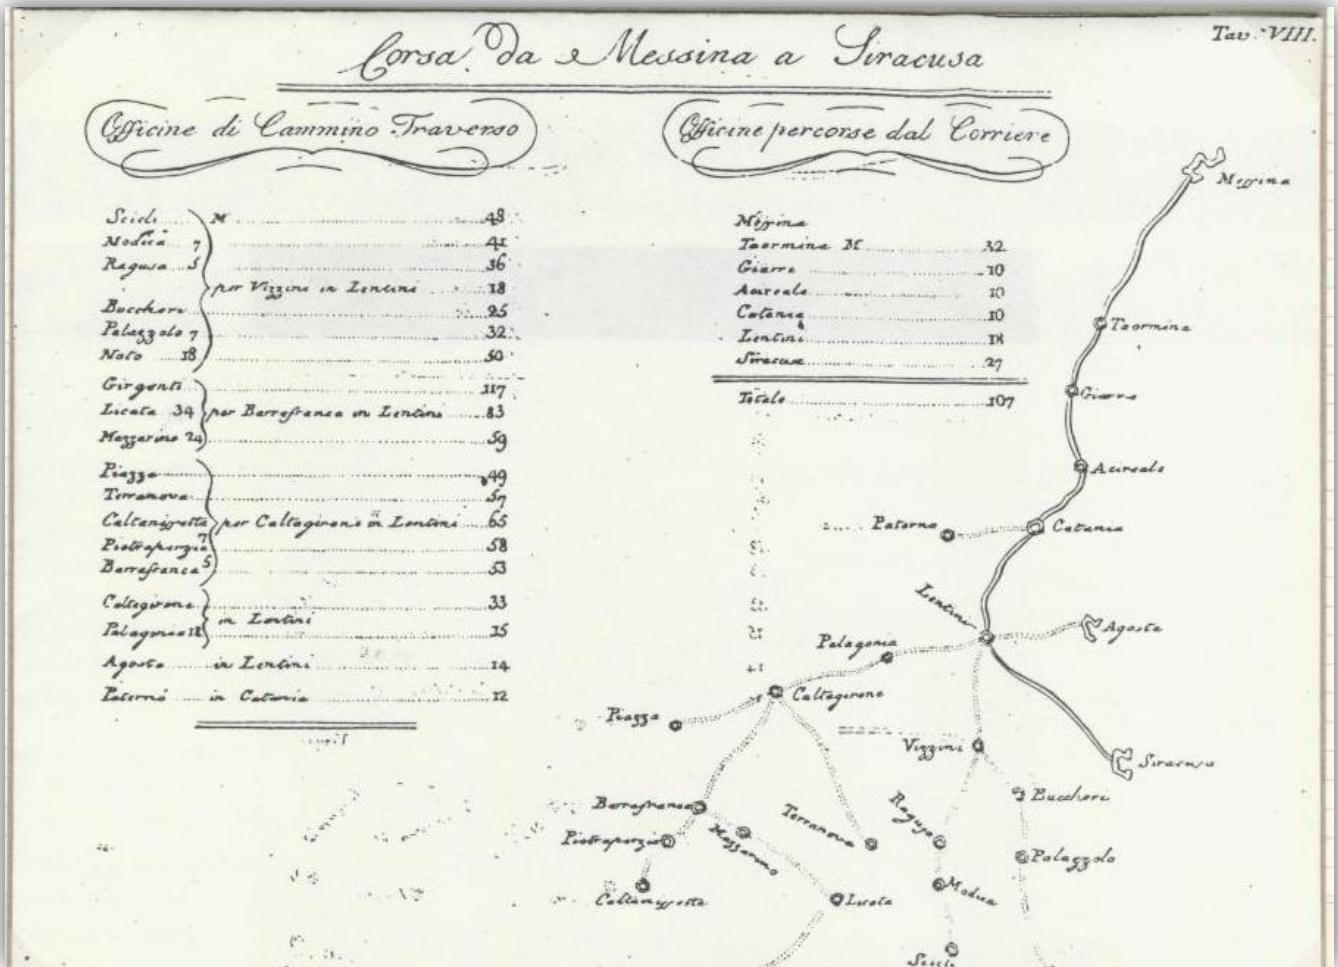 Tav. VIII.
Corsa da Messina a Siracusa
Officine di Cammino Traverso
Scicli M 48
Modica 7 41
Ragusa 5 36
per Vizzini in Lentini 18
Buccheri 25
Palazzolo 7 32
Noto 18 50
Girgenti 117
Licata 34 per Barrafranca in Lentini 83
Mazzarino 24 59
Piazza 49
Terranova 57
Caltanissetta per Caltagirone in Lentini 65
Pietraperzia 7 58
Barrafranca 5 53
Caltagirone 33
in Lentini
Palagonia 18 15
Agosta in Lentini 14
Paternò in Catania 12
Officine percorse dal Corriere
Messina
Taormina M 32
Giarre 10
Acireale 10
Catania 10
Lentini 18
Siracusa 27
Totale 107
Messina
Taormina
Giarre
Acireale
Paterno
Catania
Lentini
Agosta
Palagonia
Caltagirone
Piazza
Vizzini
Siracusa
Buccheri
Barrafranca
Ragusa
Terranova
Mazzarino
Pietraperzia
Palazzolo
Modica
Caltanissetta
Licata
Scicli